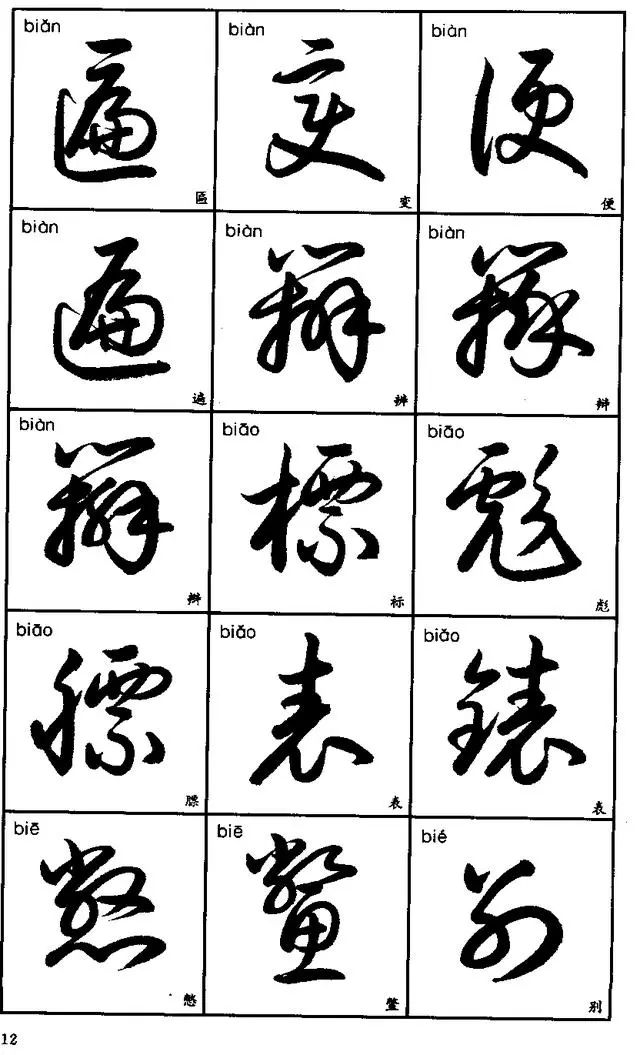 biǎn biàn biàn
匾 变 便
匾 变 便
biàn biàn biàn
遍 辨 辩
遍 辨 辩
biàn biāo biāo
辫 標 彪
辫 标 彪
biāo biǎo biǎo
膘 表 錶
膘 表 表
biē biē bié
憋 鳖 别
憋 鳖 别
12